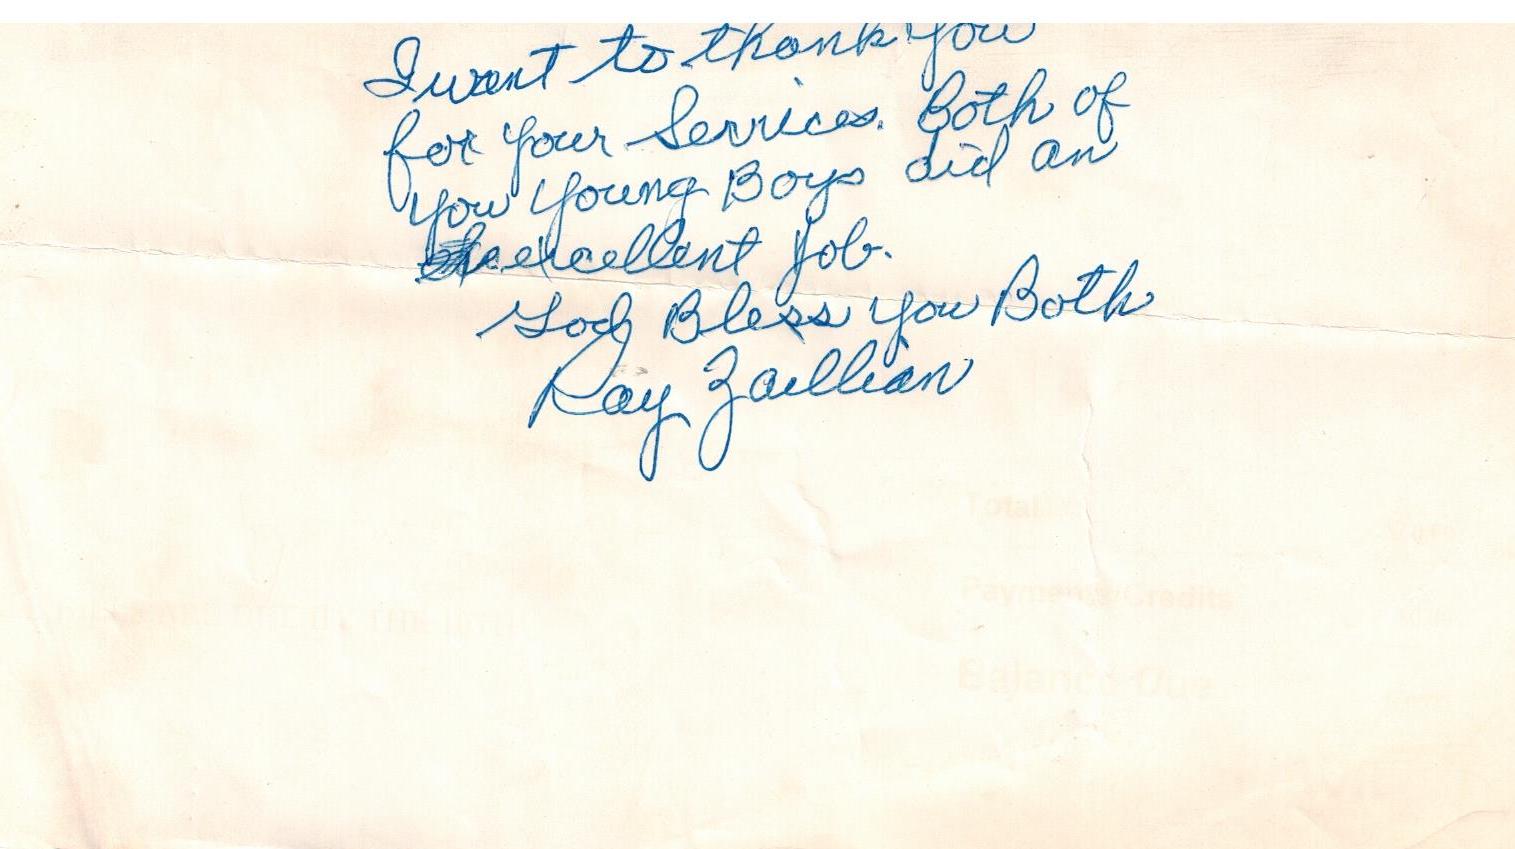 I want to thank you
for your Services. Both of
you young Boys did an
excellent job.
God Bless you Both
Ray Zaillian
Total
Payments/Credits
Balance Due